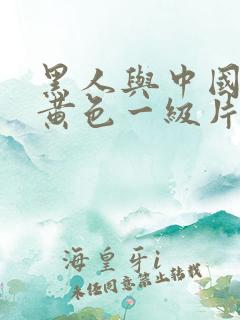 黑人與中國
黃色一級片
海皇牙i
未经同意禁止转载